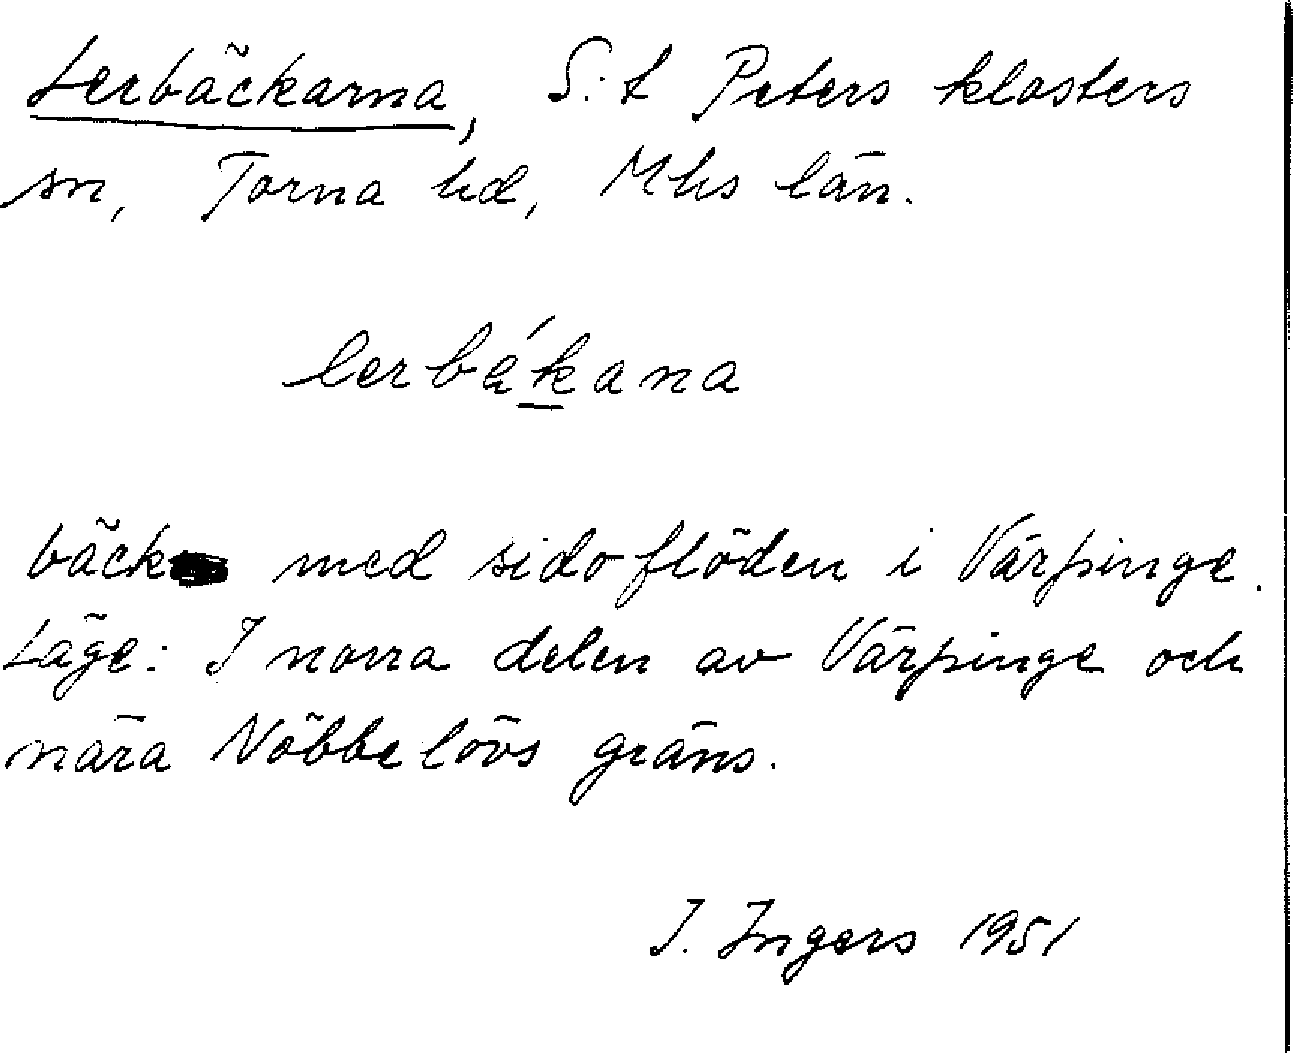 Lerbäckarna, S:t Peters klosters
sn, Torna hd, Mhs län.
lerbákana
bäck med sidoflöden i Värpinge.
Läge: I norra delen av Värpinge och
nära Nöbbelövs gräns.
I. Ingers 1951